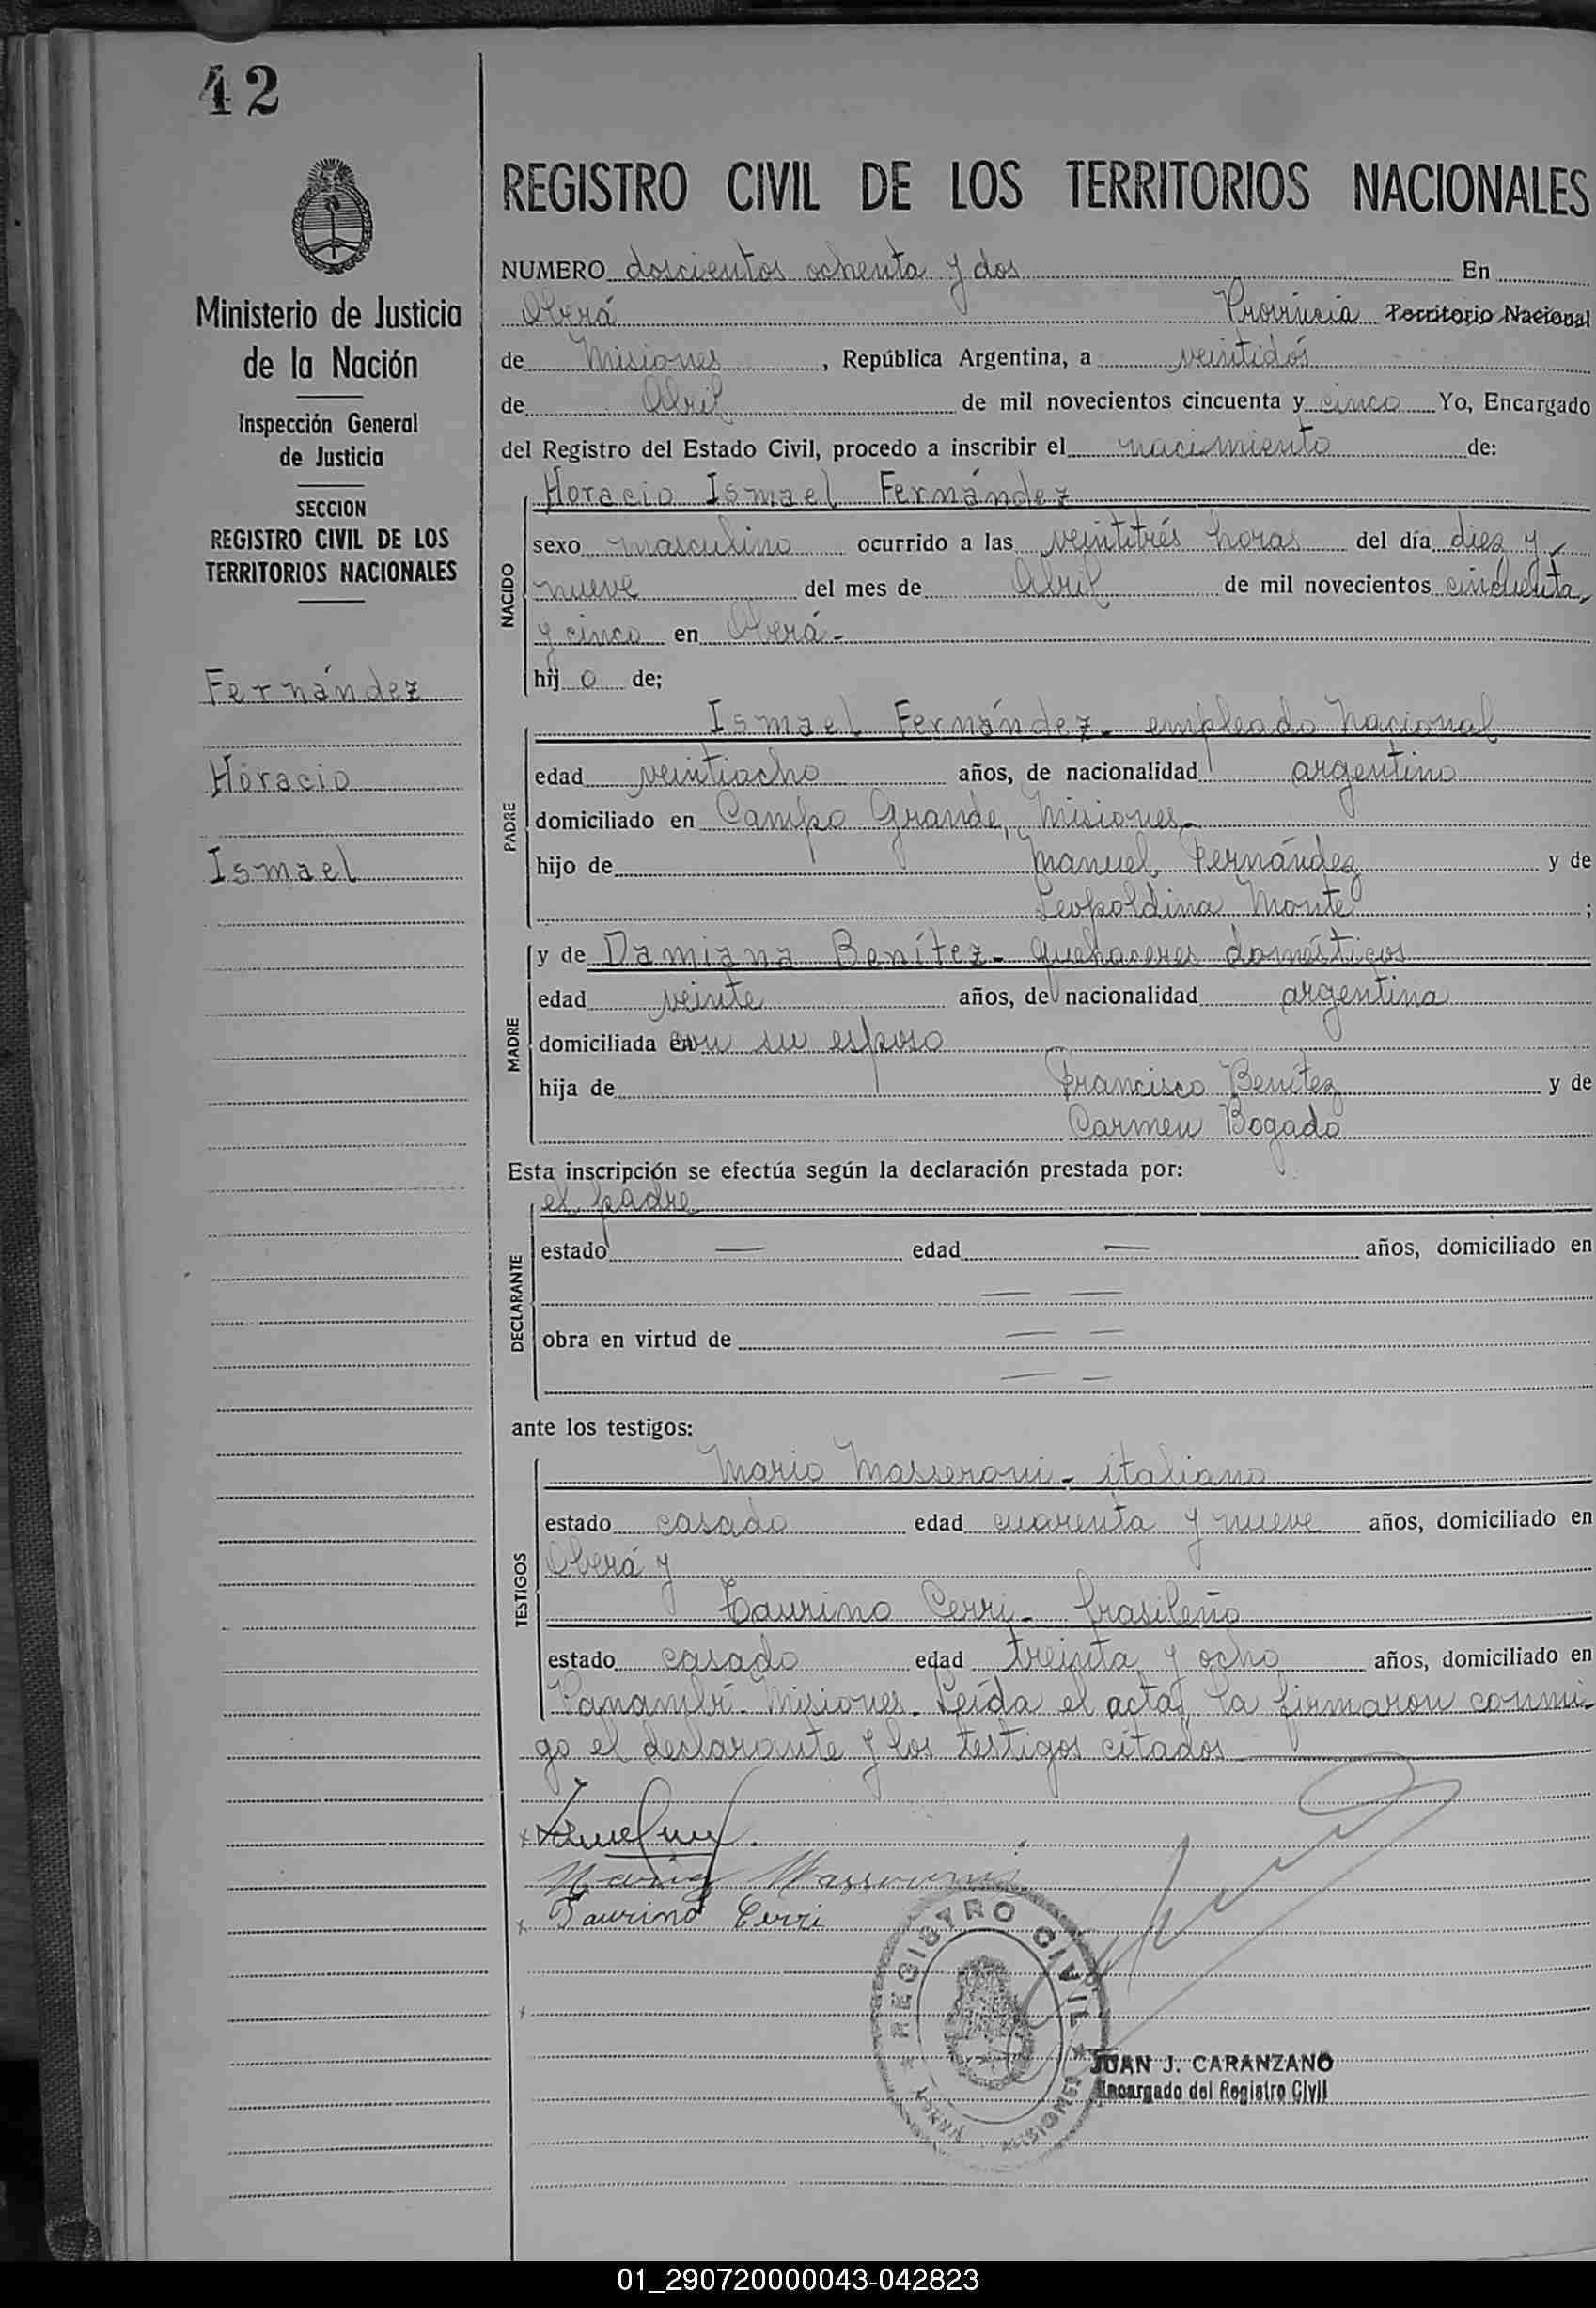 42
REGISTRO CIVIL DE LOS TERRITORIOS NACIONALES
Ministerio de Justicia
de la Nación
Inspección General
de Justicia
SECCION
REGISTRO CIVIL DE LOS
TERRITORIOS NACIONALES
Fernández
Horacio
Ismael
NUMERO doscientos ochenta y dos En
Oberá Provincia Territorio Nacional
de Misiones, República Argentina, a veintidós
de Abril de mil novecientos cincuenta y cinco Yo, Encargado
del Registro del Estado Civil, procedo a inscribir el nacimiento de:
NACIDO
Horacio Ismael Fernández
sexo masculino ocurrido a las veintitrés horas del día diez y
nueve del mes de Abril de mil novecientos cincuenta
y cinco en Oberá-
hij o de;
PADRE
Ismael Fernández- empleado nacional
edad veintiocho años, de nacionalidad argentino
domiciliado en Campo Grande, Misiones-
hijo de Manuel Fernández y de
Leopoldina Monte ;
MADRE
y de Damiana Benítez- quehaceres domésticos
edad veinte años, de nacionalidad argentina
domiciliada con su esposo
hija de Francisco Benítez y de
Carmen Bogado
Esta inscripción se efectúa según la declaración prestada por:
DECLARANTE
el padre
estado — edad — años, domiciliado en
— —
obra en virtud de — —
— —
ante los testigos:
TESTIGOS
Mario Masseroni- italiano
estado casado edad cuarenta y nueve años, domiciliado en
Oberá y
Taurino Cerri- brasileño
estado casado edad treinta y ocho años, domiciliado en
Panambí- Misiones. Leída el acta, la firmaron conmi-
go el declarante y los testigos citados
Mario Masseroni
Taurino Cerri
REGISTRO CIVIL
MISIONES
JUAN J. CARANZANO
Encargado del Registro Civil
01_290720000043-042823